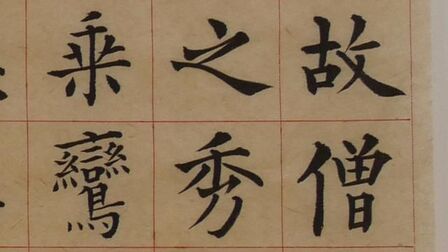 故僧
之秀
乘鸞